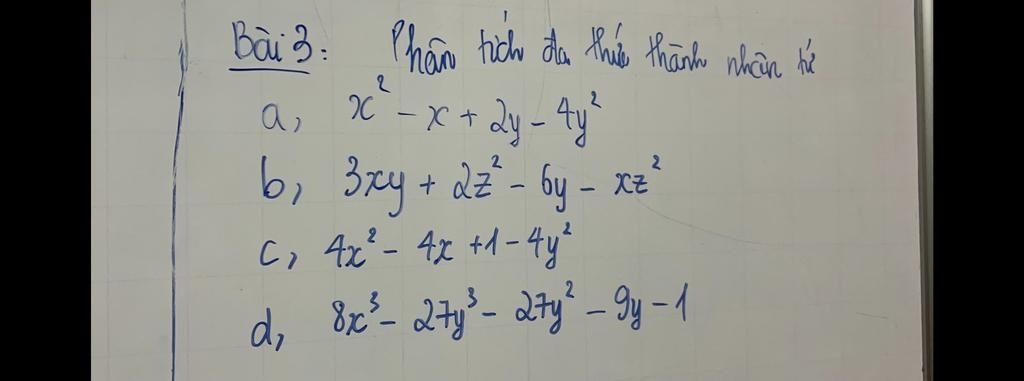 Bài 3: Phân tích đa thức thành nhân tử
a, x² - x + 2y - 4y²
b, 3xy + 2z² - 6y - xz²
c, 4x² - 4x + 1 - 4y²
d, 8x³ - 27y³ - 27y² - 9y - 1